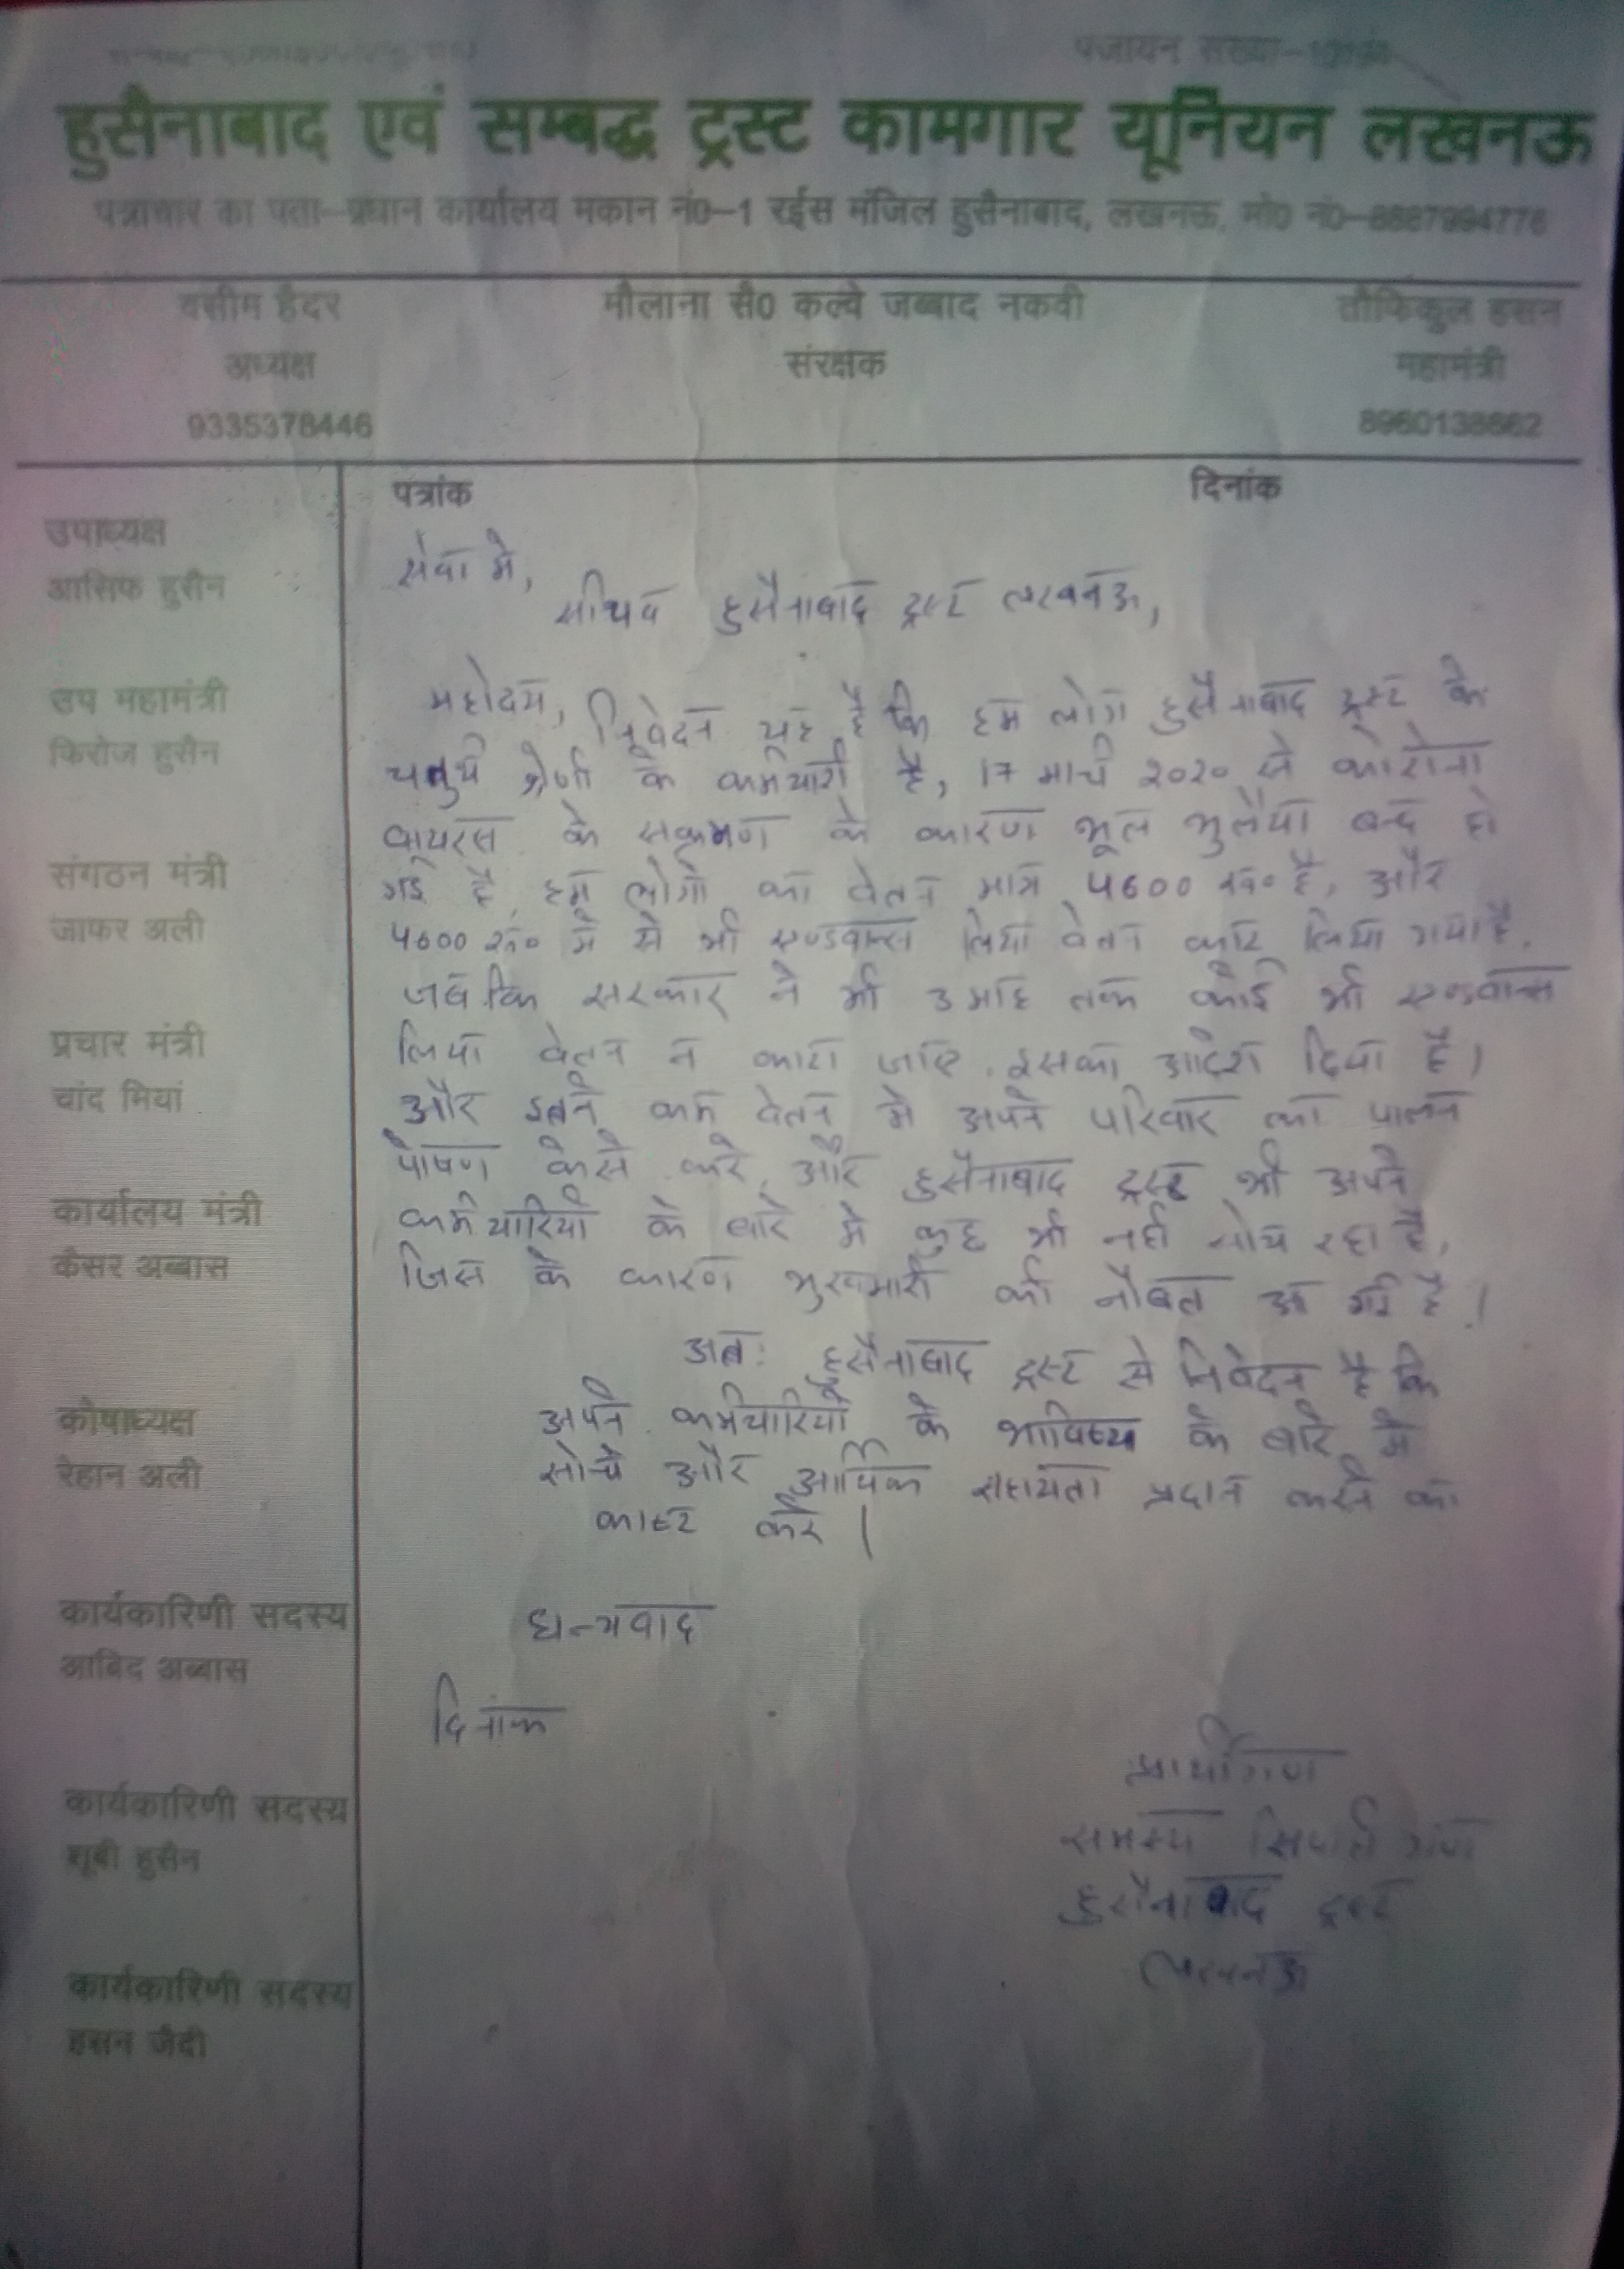 पंजीयन संख्या-
हुसैनाबाद एवं सम्बद्ध ट्रस्ट कामगार यूनियन लखनऊ
पत्राचार का पता-प्रधान कार्यालय मकान नं0-1 रईस मंजिल हुसैनाबाद, लखनऊ, मो0 नं0-8887994776
वसीम हैदर
अध्यक्ष
9335378446
मौलाना सै0 कल्बे जब्बाद नकवी
संरक्षक
तौफिकुल हसन
महामंत्री
8960138662
उपाध्यक्ष
आसिफ हुसैन
उप महामंत्री
फिरोज हुसैन
संगठन मंत्री
जाफर अली
प्रचार मंत्री
चांद मियां
कार्यालय मंत्री
कैसर अब्बास
कोषाध्यक्ष
रेहान अली
कार्यकारिणी सदस्य
आबिद अब्बास
कार्यकारिणी सदस्य
शूबी हुसैन
कार्यकारिणी सदस्य
हसन जैदी
पत्रांक दिनांक
सेवा मे,
सचिव हुसैनाबाद ट्रस्ट लखनऊ,
महोदय, निवेदन यह है कि हम लोग हुसैनाबाद ट्रस्ट के
चतुर्थ श्रेणी के कर्मचारी है, 17 मार्च २०२० से कोरोना
वायरस के सक्रमण के कारण भूल भुलैया बन्द हो
गई है, हम लोगो का वेतन मात्र 4600 रू० है, और
4600 रू० मे से भी एण्डवान्स लिया वेतन काट लिया गया है.
जब कि सरकार ने भी 3 माह तक कोई भी एण्डवान्स
लिया वेतन न काटा जाए. इसका आदेश दिया है।
और इतने कम वेतन मे अपने परिवार का पालन
पोषण कैसे करे, और हुसैनाबाद ट्रस्ट भी अपने
कर्मचारियो के बारे मे कुछ भी नही सोच रहा है,
जिस के कारण भुखमारी की नौबत आ गई है।
अतः हुसैनाबाद ट्रस्ट से निवेदन है कि
अपने कर्मचारियो के भाविष्य के बारे मे
सोचे और आर्थिक सहायता प्रदान करने का
काष्ट करे।
धन्यवाद
दिनांक
प्रार्थीगण
समस्य सिपाही गण
हुसैनाबाद ट्रस्ट
लखनऊ